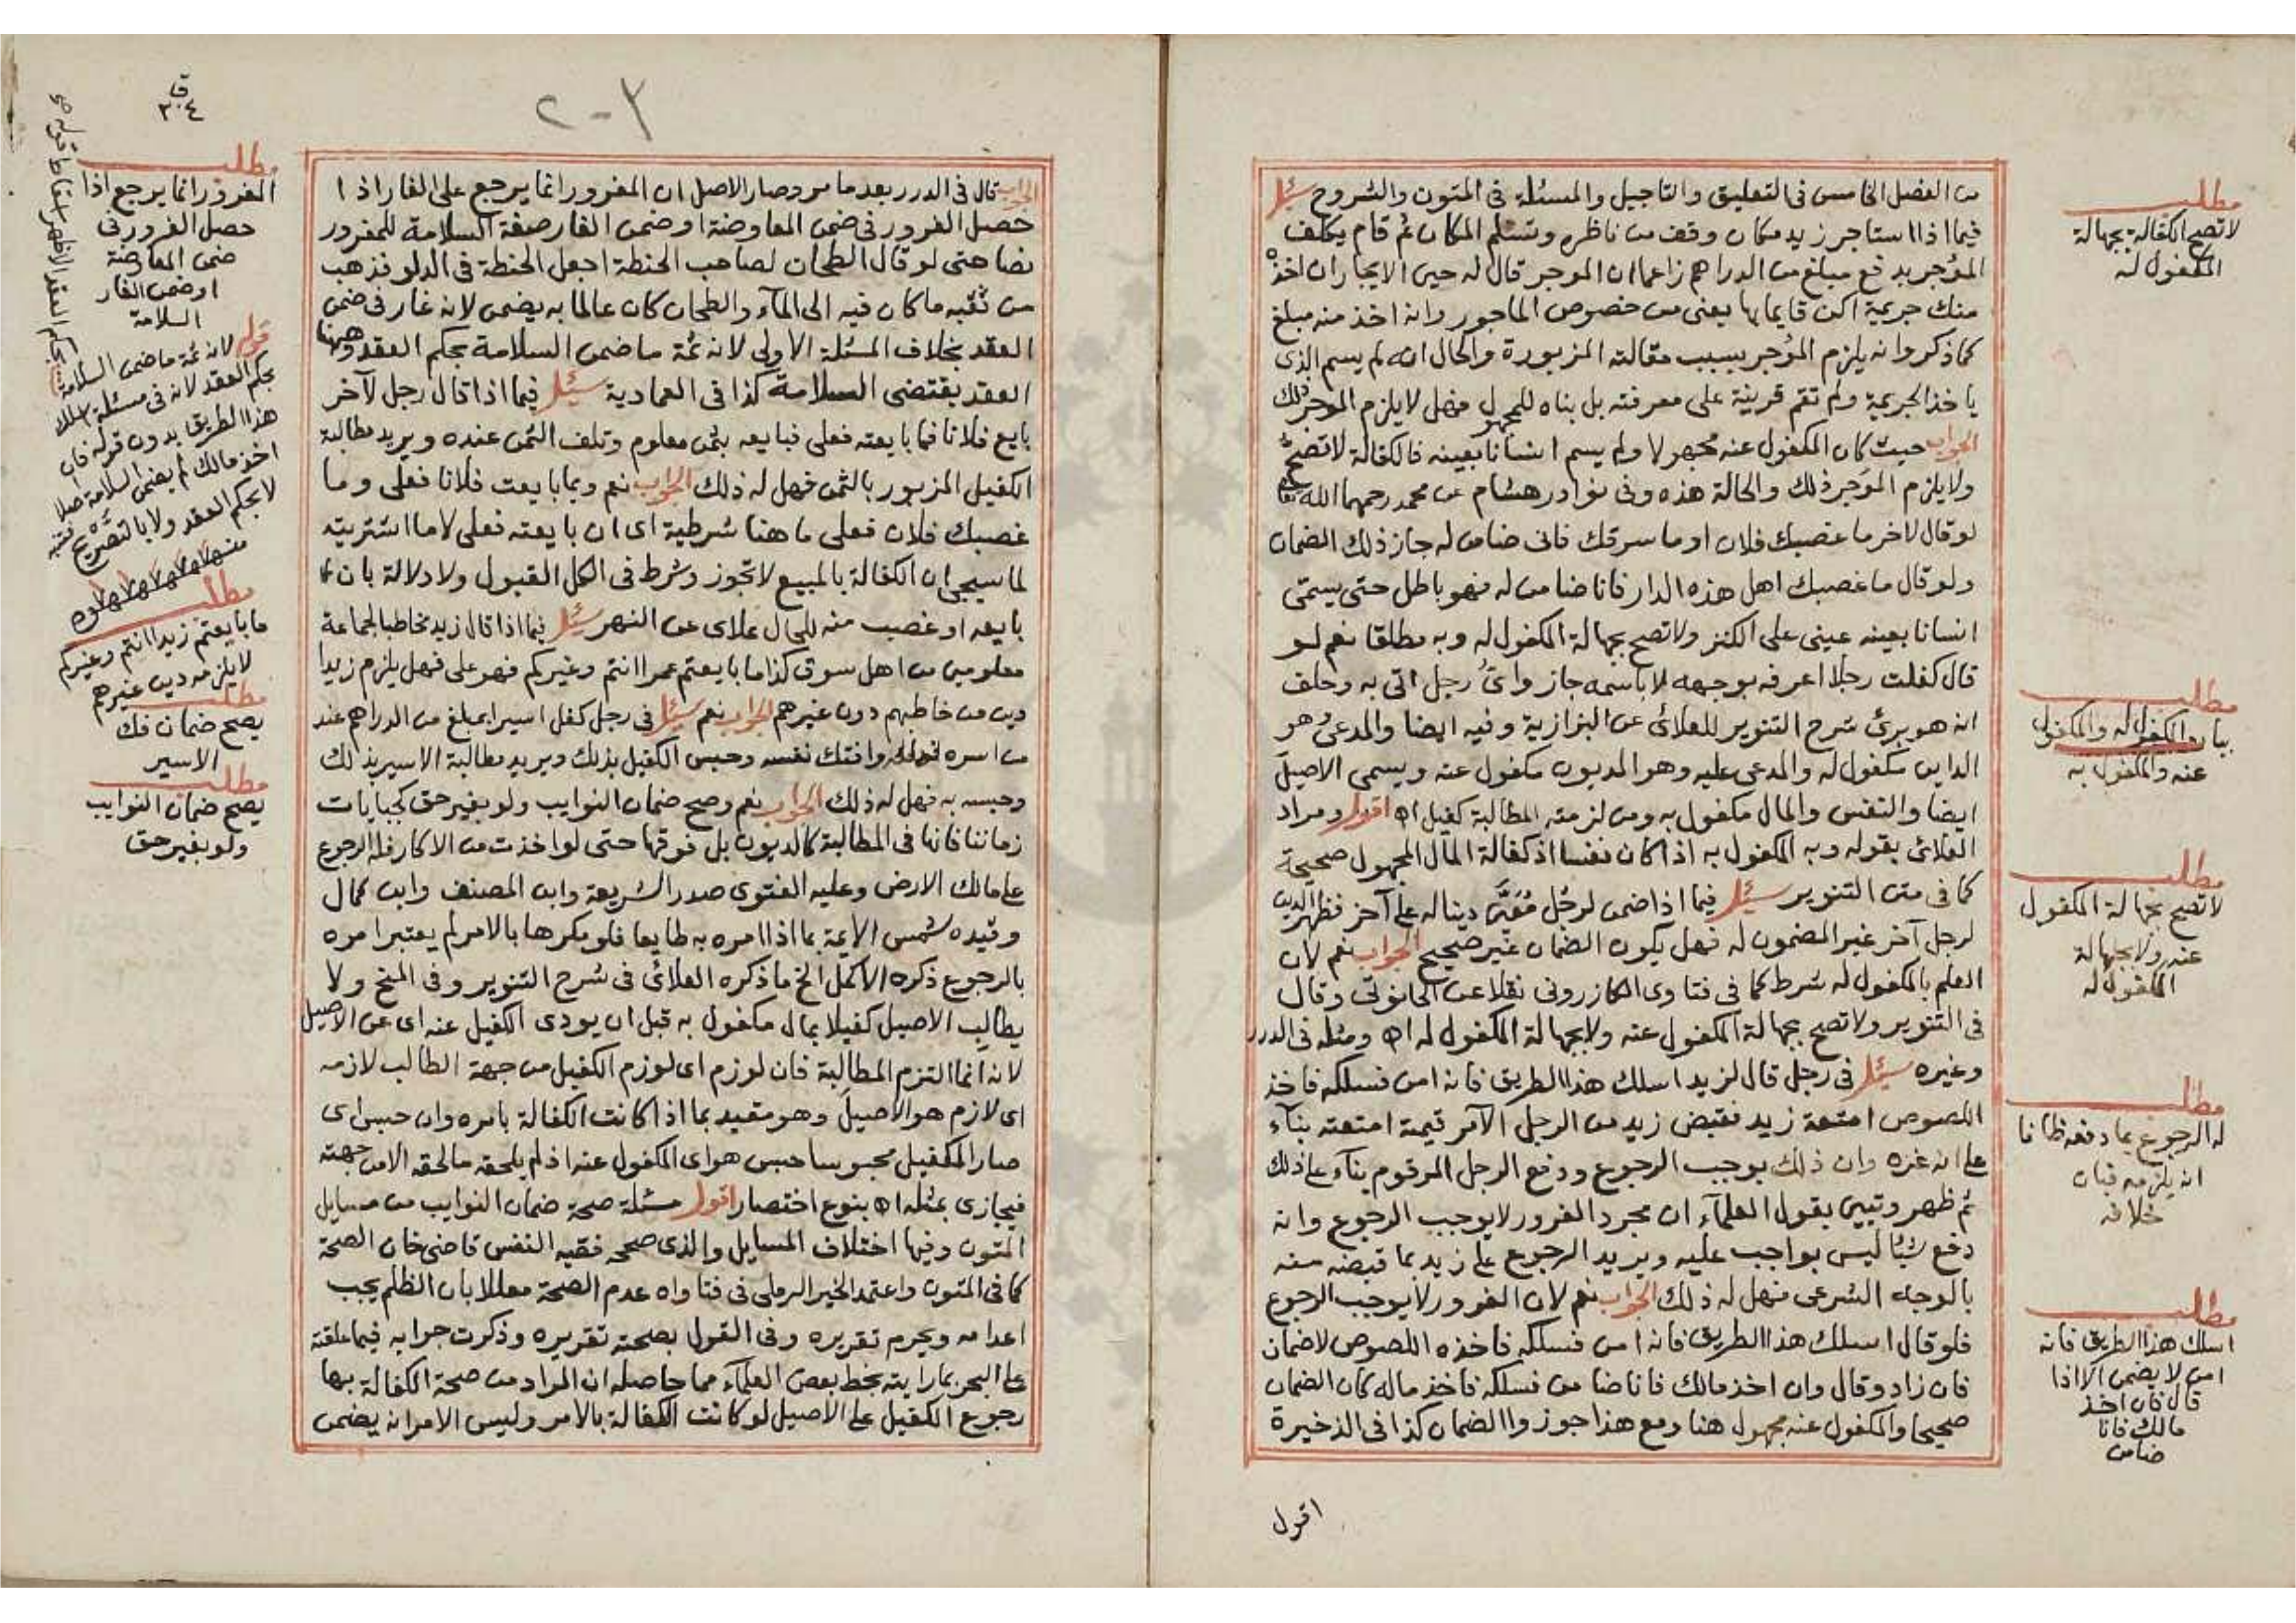 من الفصل الخامس فى التعليق والتاجيل والمسئلة فى المتون والشروح سئل
فيما اذا استاجر زيد مكان وقف من ناظره وتسلم المكان ثم قام يكلف
المؤجر بدفع مبلغ من الدراهم زاعما ان الموجر قال له حين الايجار ان اخذ
منك جريمة اكن قايما بها يعنى من خصوص الماجور وانه اخذ منه مبلغ
كما ذكر وانه يلزم المؤجر بسبب مقالته المزبورة والحال انه لم يسم الذى
ياخذ الجريمة ولم تقم قرينة على معرفته بل بناه للمجهول فهل لا يلزم الموجر ذلك
الجواب حيث كان المكفول عنه مجهولا ولم يسم انسانا بعينه فالكفالة لا تصح
ولا يلزم المؤجر ذلك والحالة هذه وفى نوادر هشام عن محمد رحمهما الله تعالى
لو قال لاخر ما غصبك فلان او ما سرقك فانى ضامن له جاز ذلك الضمان
ولو قال ما غصبك اهل هذه الدار فانا ضامن له فهو باطل حتى يسمى
انسانا بعينه عينى على الكنز ولا تصح بجهالة المكفول له وبه مطلقا نعم لو
قال كفلت رجلا اعرفه بوجهه لا باسمه جاز واى رجل اتى به وحلف
انه هو برئ شرح التنوير للعلائى عن البزازية وفيه ايضا والمدعى هو
الداين مكفول له والمدعى عليه وهو المديون مكفول عنه ويسمى الاصيل
ايضا والنفس والمال مكفول به ومن لزمته المطالبة كفيل اه اقول ومراد
العلائى بقوله وبه المكفول به اذا كان نفسا اذ كفالة المال المجهول صحيحة
كما فى متن التنوير سئل فيما اذا ضمن لرجل دينا له على آخر فظهر الدين
لرجل آخر غير المضمون له فهل يكون الضمان غير صحيح الجواب نعم لان
العلم بالمكفول له شرط كما فى فتاوى الكازرونى نقلا عن الحانوتى وقال
فى التنوير ولا تصح بجهالة المكفول عنه ولا بجهالة المكفول له اه ومثله فى الدرر
وغيره سئل فى رجل قال لزيد اسلك هذا الطريق فانه امن فسلكه فاخذ
اللصوص امتعة زيد فقبض زيد من الرجل الآمر قيمة امتعته بنآء
على انه غره وان ذلك يوجب الرجوع ودفع الرجل المرقوم بنآء على ذلك
ثم ظهر وتبين بقول العلمآء ان مجرد الغرور لا يوجب الرجوع وانه
دفع شيئا ليس بواجب عليه ويريد الرجوع على زيد بما قبضه منه
بالوجه الشرعى فهل له ذلك الجواب نعم لان الغرور لا يوجب الرجوع
فلو قال اسلك هذا الطريق فانه امن فسلكه فاخذه اللصوص لاضمان
فان زاد وقال وان اخذ مالك فانا ضامن فسلكه فاخذ ماله كان الضمان
صحيحا والمكفول عنه مجهول هنا ومع هذا جوزوا الضمان كذا فى الذخيرة
اقول
مطلب
لا تصح الكفالة بجهالة
المكفول له
مطلب
بيان المكفول له والمكفول
عنه والمكفول به
مطلب
لا تصح بجهالة المكفول
عنه ولا بجهالة
المكفول له
مطلب
له الرجوع بما دفعه ظانا
انه يلزمه فبان
خلافه
مطلب
اسلك هذا الطريق فانه
امن لا يضمن الا اذا
قال فان اخذ
مالك فانا
ضامن
٢٠٣
قا
٣٠٤
الجواب قال فى الدرر بعد ما مر وصار الاصل ان المغرور انما يرجع على الغار اذا
حصل الغرور فى ضمن المعاوضة او ضمن الغار صفة السلامة للمغرور
نصا حتى لو قال الطحان لصاحب الحنطة اجعل الحنطة فى الدلو فذهب
من ثقبه ما كان فيه الى المآء والطحان كان عالما به يضمن لانه غار فى ضمن
العقد بخلاف المسئلة الاولى لانه ثمة ما ضمن السلامة بحكم العقد وههنا
العقد يقتضى السلامة كذا فى العمادية سئل فيما اذا قال رجل لآخر
بايع فلانا فما بايعته فعلى فبايعه بثمن معلوم وتلف الثمن عنده ويريد مطالبة
الكفيل المزبور بالثمن فهل له ذلك الجواب نعم وبما بايعت فلانا فعلى وما
غصبك فلان فعلى ما هنا شرطية اى ان بايعته فعلى لا ما اشتريته
لما سيجى ان الكفالة بالمبيع لا تجوز وشرط فى الكل القبول ولا دلالة بان
بايعه او غصب منه للحال علائى عن النهر سئل فيما اذا قال زيد مخاطبا لجماعة
معلومين من اهل سوق كذا ما بايعتم عمرا انتم وغيركم فهو على فهل يلزم زيدا
دين من خاطبهم دون غيرهم الجواب نعم سئل فى رجل كفل اسيرا بمبلغ من الدراهم عند
من اسره وافتك نفسه وحبس الكفيل بذلك ويريد مطالبة الاسير بذلك
وحبسه به فهل له ذلك الجواب نعم وصح ضمان النوايب ولو بغير حق كجبايات
زماننا فانها فى المطالبة كالديون بل فوقها حتى لو اخذت من الاكار فله الرجوع
على مالك الارض وعليه الفتوى صدر الشريعة وابن المصنف وابن كمال
وقيده شمس الايمة بما اذا امره به طايعا فلو مكرها بالامر لم يعتبر امره
بالرجوع ذكره الاكمل الخ ما ذكره العلائى فى شرح التنوير وفى المنح ولا
يطالب الاصيل كفيلا بمال مكفول به قبل ان يودى الكفيل عنه اى عن الاصيل
لانه انما التزم المطالبة فان لوزم اى لوزم الكفيل من جهة الطالب لازمه
اى لازم هو الاصيل وهو مقيد بما اذا كانت الكفالة بامره وان حبس اى
صار الكفيل محبوسا حبس هو اى المكفول عنه اذ لم يلحقه ما لحقه الا من جهته
فيجازى بمثله اه بنوع اختصار اقول مسئلة صحة ضمان النوايب من مسايل
المتون وفيها اختلاف المسايل والذى صححه فقيه النفس قاضى خان الصحة
كما فى المتون واعتمد الخير الرملى فى فتاواه عدم الصحة معللا بان الظلم يجب
اعدامه ويحرم تقريره وفى القول بصحته تقريره وذكرت جوابه فيما علقته
على البحر بما رايته بخط بعض العلمآء مما حاصله ان المراد من صحة الكفالة بها
رجوع الكفيل على الاصيل لو كانت الكفالة بالامر وليس الامر انه يضمن
مطلب
المغرور انما يرجع اذا
حصل الغرور فى
ضمن المعاوضة
او ضمن الغار
السلامة
قوله لانه ثمة ما ضمن السلامة
بحكم العقد لانه فى مسئلة
هذا الطريق بدون قوله فان
اخذ مالك لم يضمن السلامة اصلا
لا بحكم العقد ولا بالتصريح
منه
بحكم العقد الاظهر اسقاط قوله
مطلب
ما بايعتم زيدا انتم وغيركم
لا يلزمه دين غيرهم
مطلب
يصح ضمان فك
الاسير
مطلب
يصح ضمان النوايب
ولو بغير حق